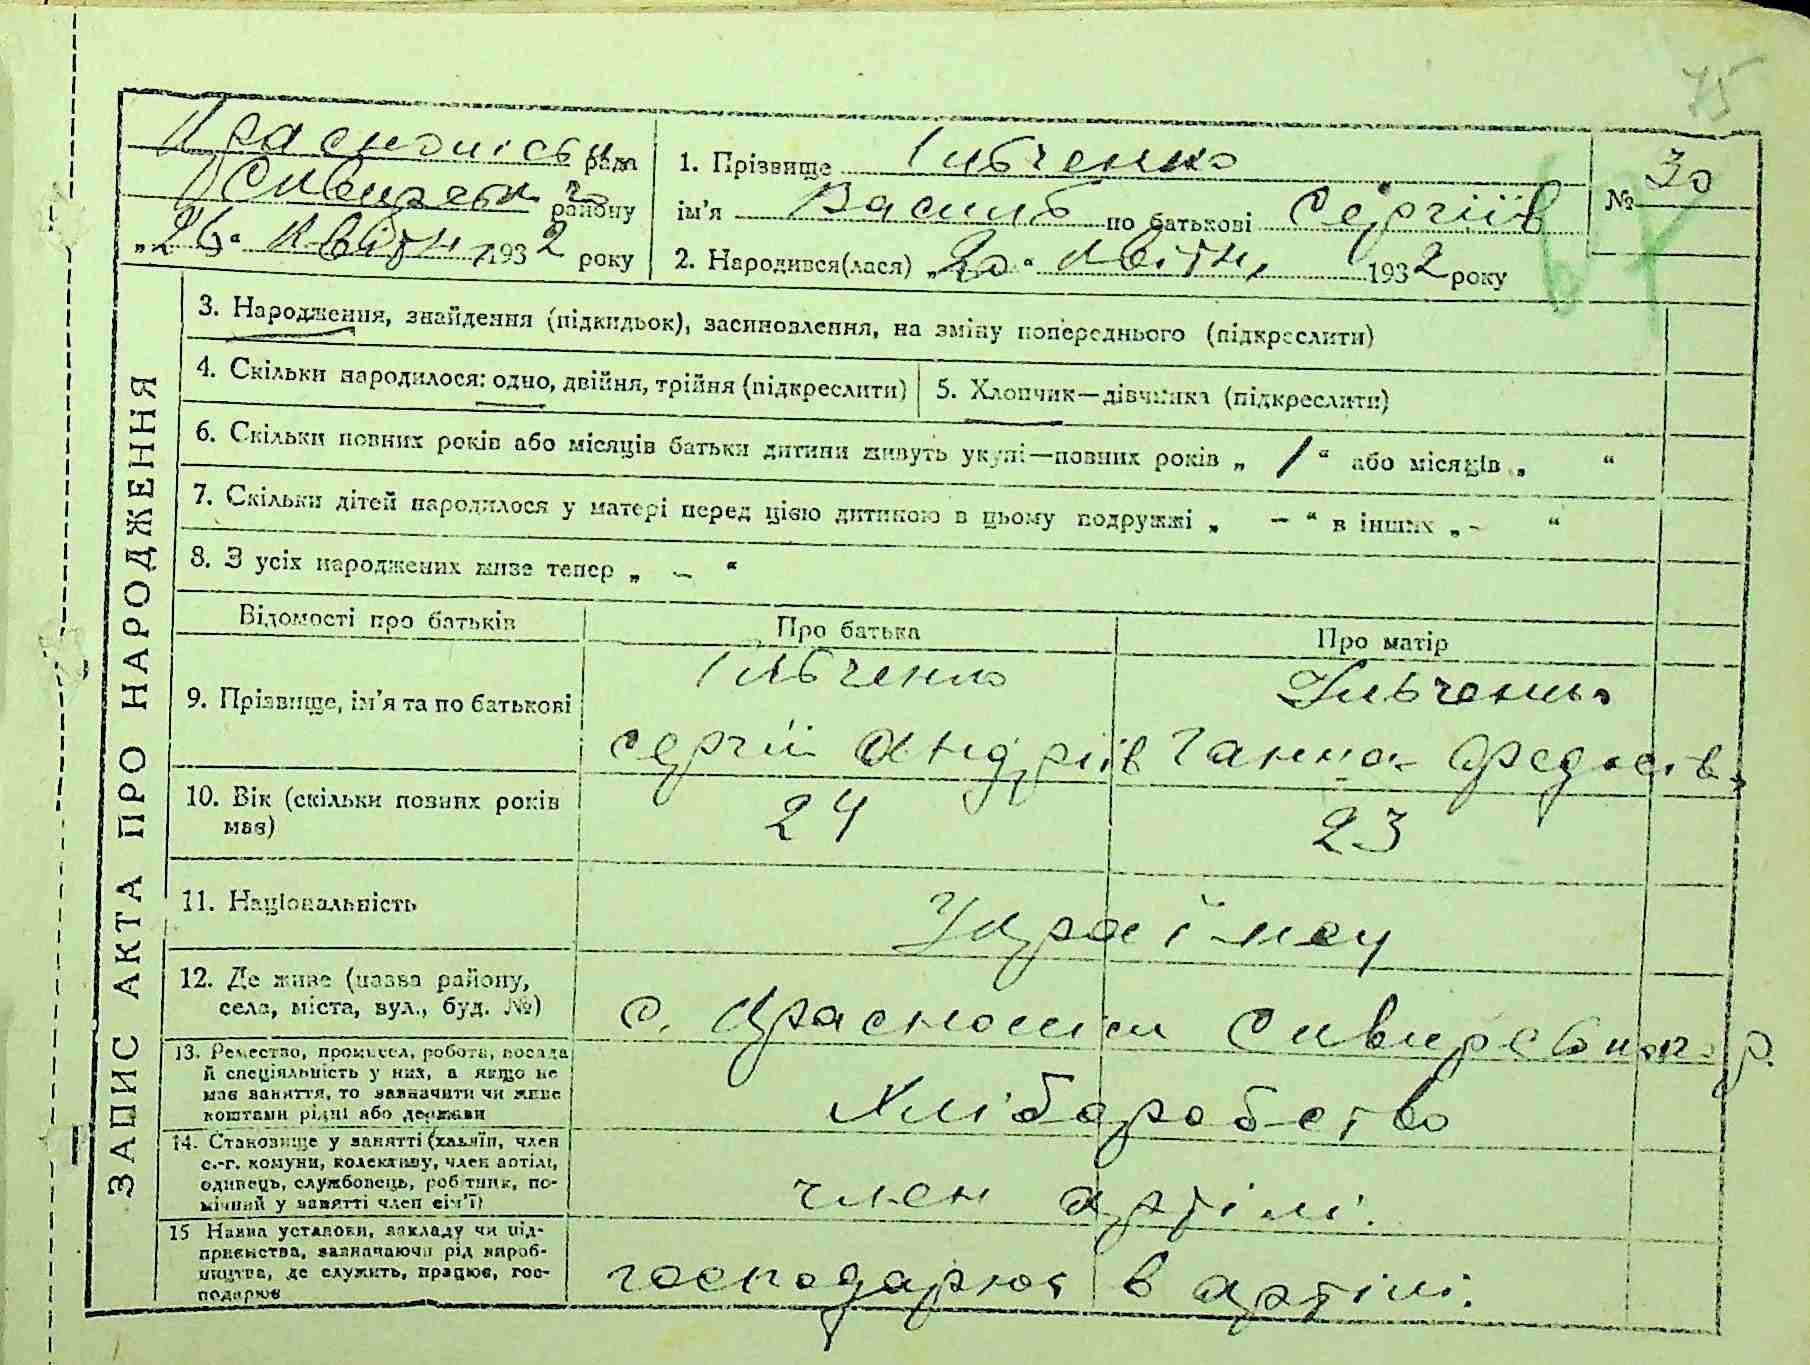 75
Красноліська рада
Сивирськ го району
„26“ квітн, 1932 року
1. Прізвище Ільченко
ім'я Василь по батькові Сергіїв
2. Народився(лася) „20“ квітн, 1932 року
№ 30
67
ЗАПИС АКТА ПРО НАРОДЖЕННЯ
3. Народження, знайдення (підкидьок), засиновлення, на зміну попереднього (підкреслити)
4. Скільки народилося: одно, двійня, трійня (підкреслити)
5. Хлопчик—дівчинка (підкреслити)
6. Скільки повних років або місяців батьки дитини живуть укупі—повних років „ 1 “ або місяців „ “
7. Скільки дітей народилося у матері перед цією дитиною в цьому подружжі „ – “ в інших „ – “
8. З усіх народжених живе тепер „ – “
Відомості про батьків
Про батька
Про матір
9. Прізвище, ім'я та по батькові
Ільченко
Сергій Андріїв
Ільченко
Ганна Федосів,
10. Вік (скільки повних років
має)
24
23
11. Національність
Українец
12. Де живе (назва району,
село, міста, вул., буд. №)
с. Красноліси Сивирського р.
13. Ремество, промисел, робота, посада
й спеціяльність у них, а якщо не
має заняття, то зазначити чи живе
коштами рідні або держави
Хліборобство
14. Становище у занятті (хазяїн, член
с.-г. комуни, колективу, член артілі,
одинець, службовець, робітник, по-
мічний у занятті член сім'ї)
член артілі.
15 Назва установи, закладу чи під-
приємства, зазначаючи рід вироб-
ництва, де служить, працює, гос-
подарює
господарює в артілі.